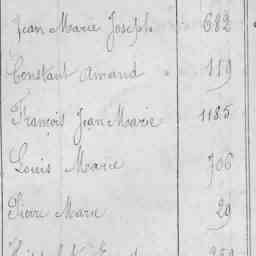 Jean Marie Joseph 682
Constant Amand 119
François Jean Marie 1185
Louis Marie 706
Pierre Marie 29